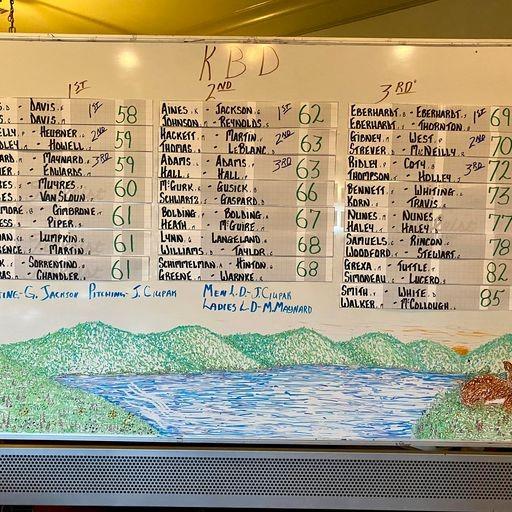 KBD
1ST
DAVIS 1ST 58
DAVIS
HEUBNER 2ND 59
HOWELL
MAYNARD 3RD 59
EDWARDS
MUYRES 60
VAN SLOUN
GIMBRONE 61
PIPER
LUMPKIN 61
MARTIN
SORRENTINO 61
CHANDLER
2ND
AINES - JACKSON 1ST 62
JOHNSON - REYNOLDS
HACKETT - MARTIN 2ND 63
THOMAS - LEBLANC
ADAMS - ADAMS 3RD 63
HALL - HALL
MCGURK - GUSICK 66
SCHWARTZ - GASPARD
BOLDING - BOLDING 67
HEATH - MCGUIRE
LYNN - LANGELAND 68
WILLIAMS - TAYLOR
SCHIMMELMAN - HINTON 68
GREENE - WARNKE
3RD
EBERHARDT - EBERHARDT 1ST 69
EBERHARDT - THORNTON
GIBNEY - WEST 2ND 70
STREVER - MCNEILLY
RIDLEY - COTY 3RD 72
THOMPSON - HOLLEY
BENNETT - WHITING 73
KORN - TRAVIS
NUNES - NUNES 77
HALEY - HALEY
SAMUELS - RINCON 78
WOODFORD - STEWART
GREXA - TUTTLE 82
SIMONEAU - LUCERO
SMITH - WHITE 85
WALKER - MCCOLLOUGH
G. JACKSON PITCHING - J. CIUPAK MEN L.D. - J. CIUPAK
LADIES L.D - M. MAYNARD